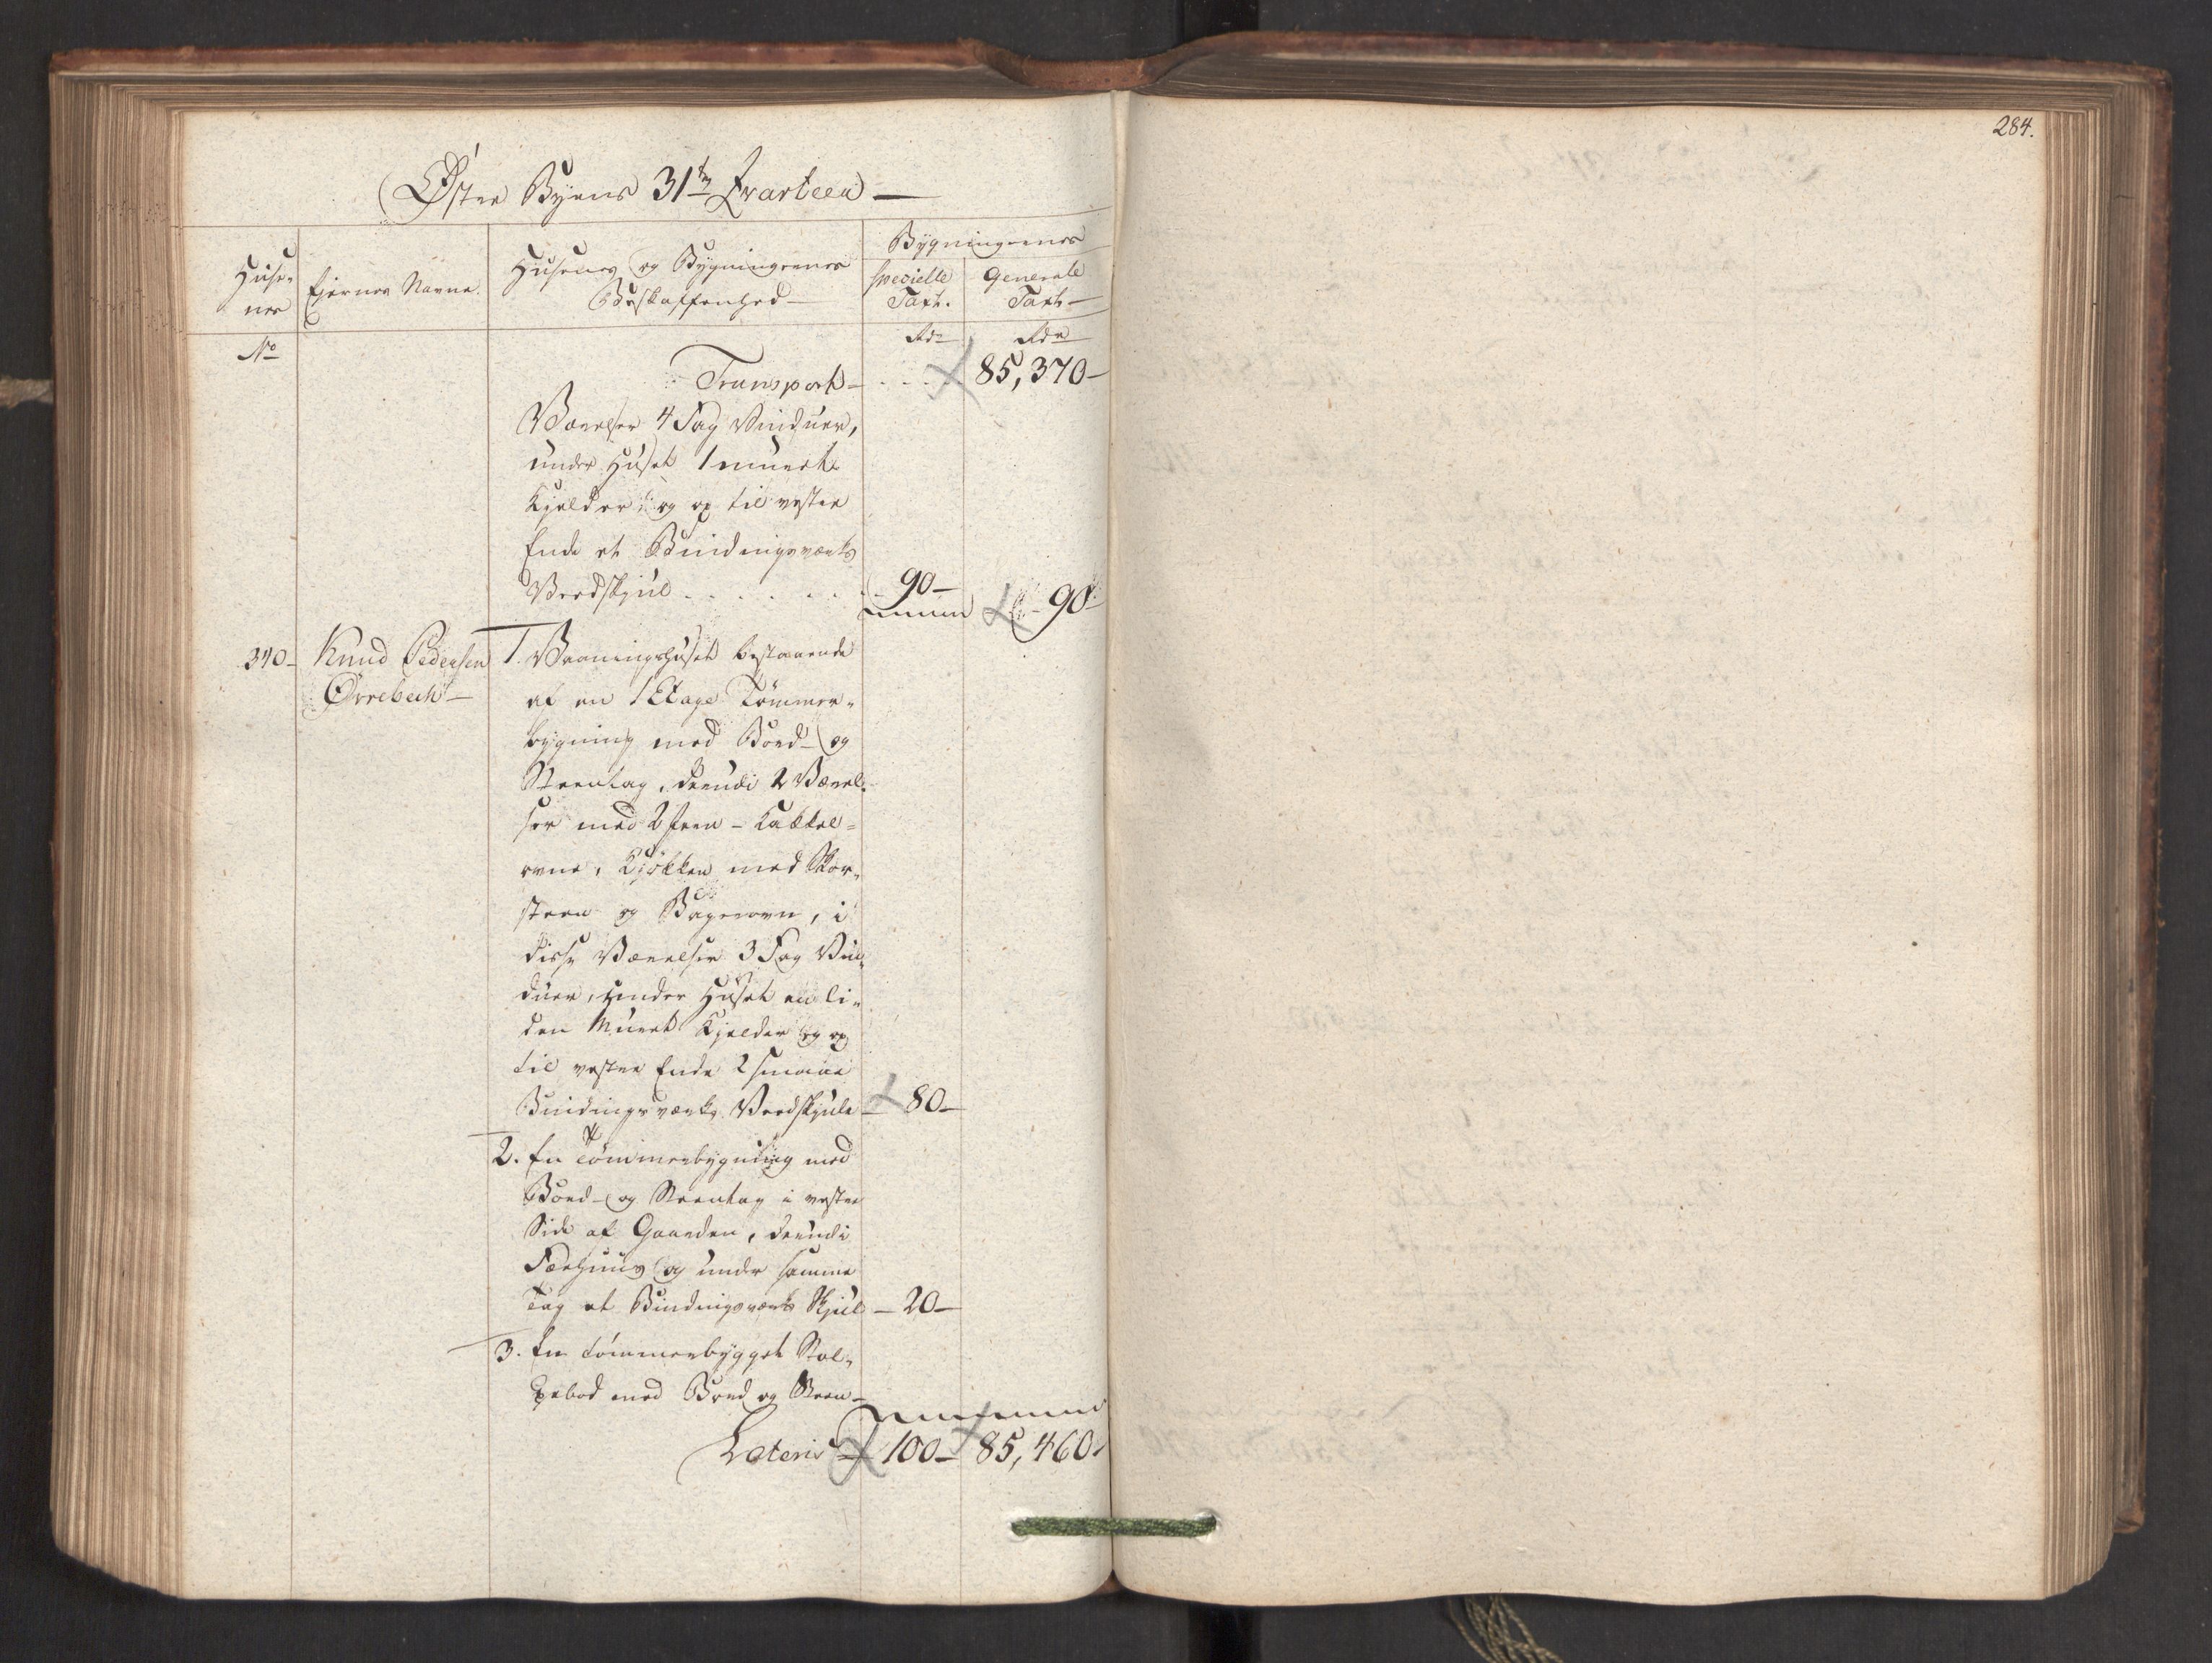 284.
Øster Byens 31te Qvarteer
Huse-
nes
Ejernes Navne.
Husenes og Bygningernes
Beskaffenhed
Bygningernes
specielle
Taxt.
Generale
Taxt
No
Rdr
Rdr
Transport 85,370
Værelser 4 Fag Vinduer,
under Huset 1 muret
Kjelder og op til vester
Ende et Bindingsværks
Vedskjul 90 90
340 Knud Pedersen 1. Vaaningshuset bestaaende
Ørrebech af en 1 Etage Tømmer-
bygning med Bord- og
Steentag, derudi 2 Værel-
ser med 2 Jern-Kakkel-
ovne, Kjøkken med Skor-
steen og Bagerovn, i
disse Værelser 3 Fag Vin-
duer, under Huset en li-
den Muret Kjelder og op
til vester Ende 2 smaae
Bindingsværks Vedskjule 80
2. En Tømmerbygning med
Bord- og Steentag i vestre
Side af Gaarden, derudi
Fæehuus og under samme
Tag et Bindingsværks Skjul 20
3. En tømmerbygget Stol-
pebod med Bord og Steen-
Lateris 100 85,460